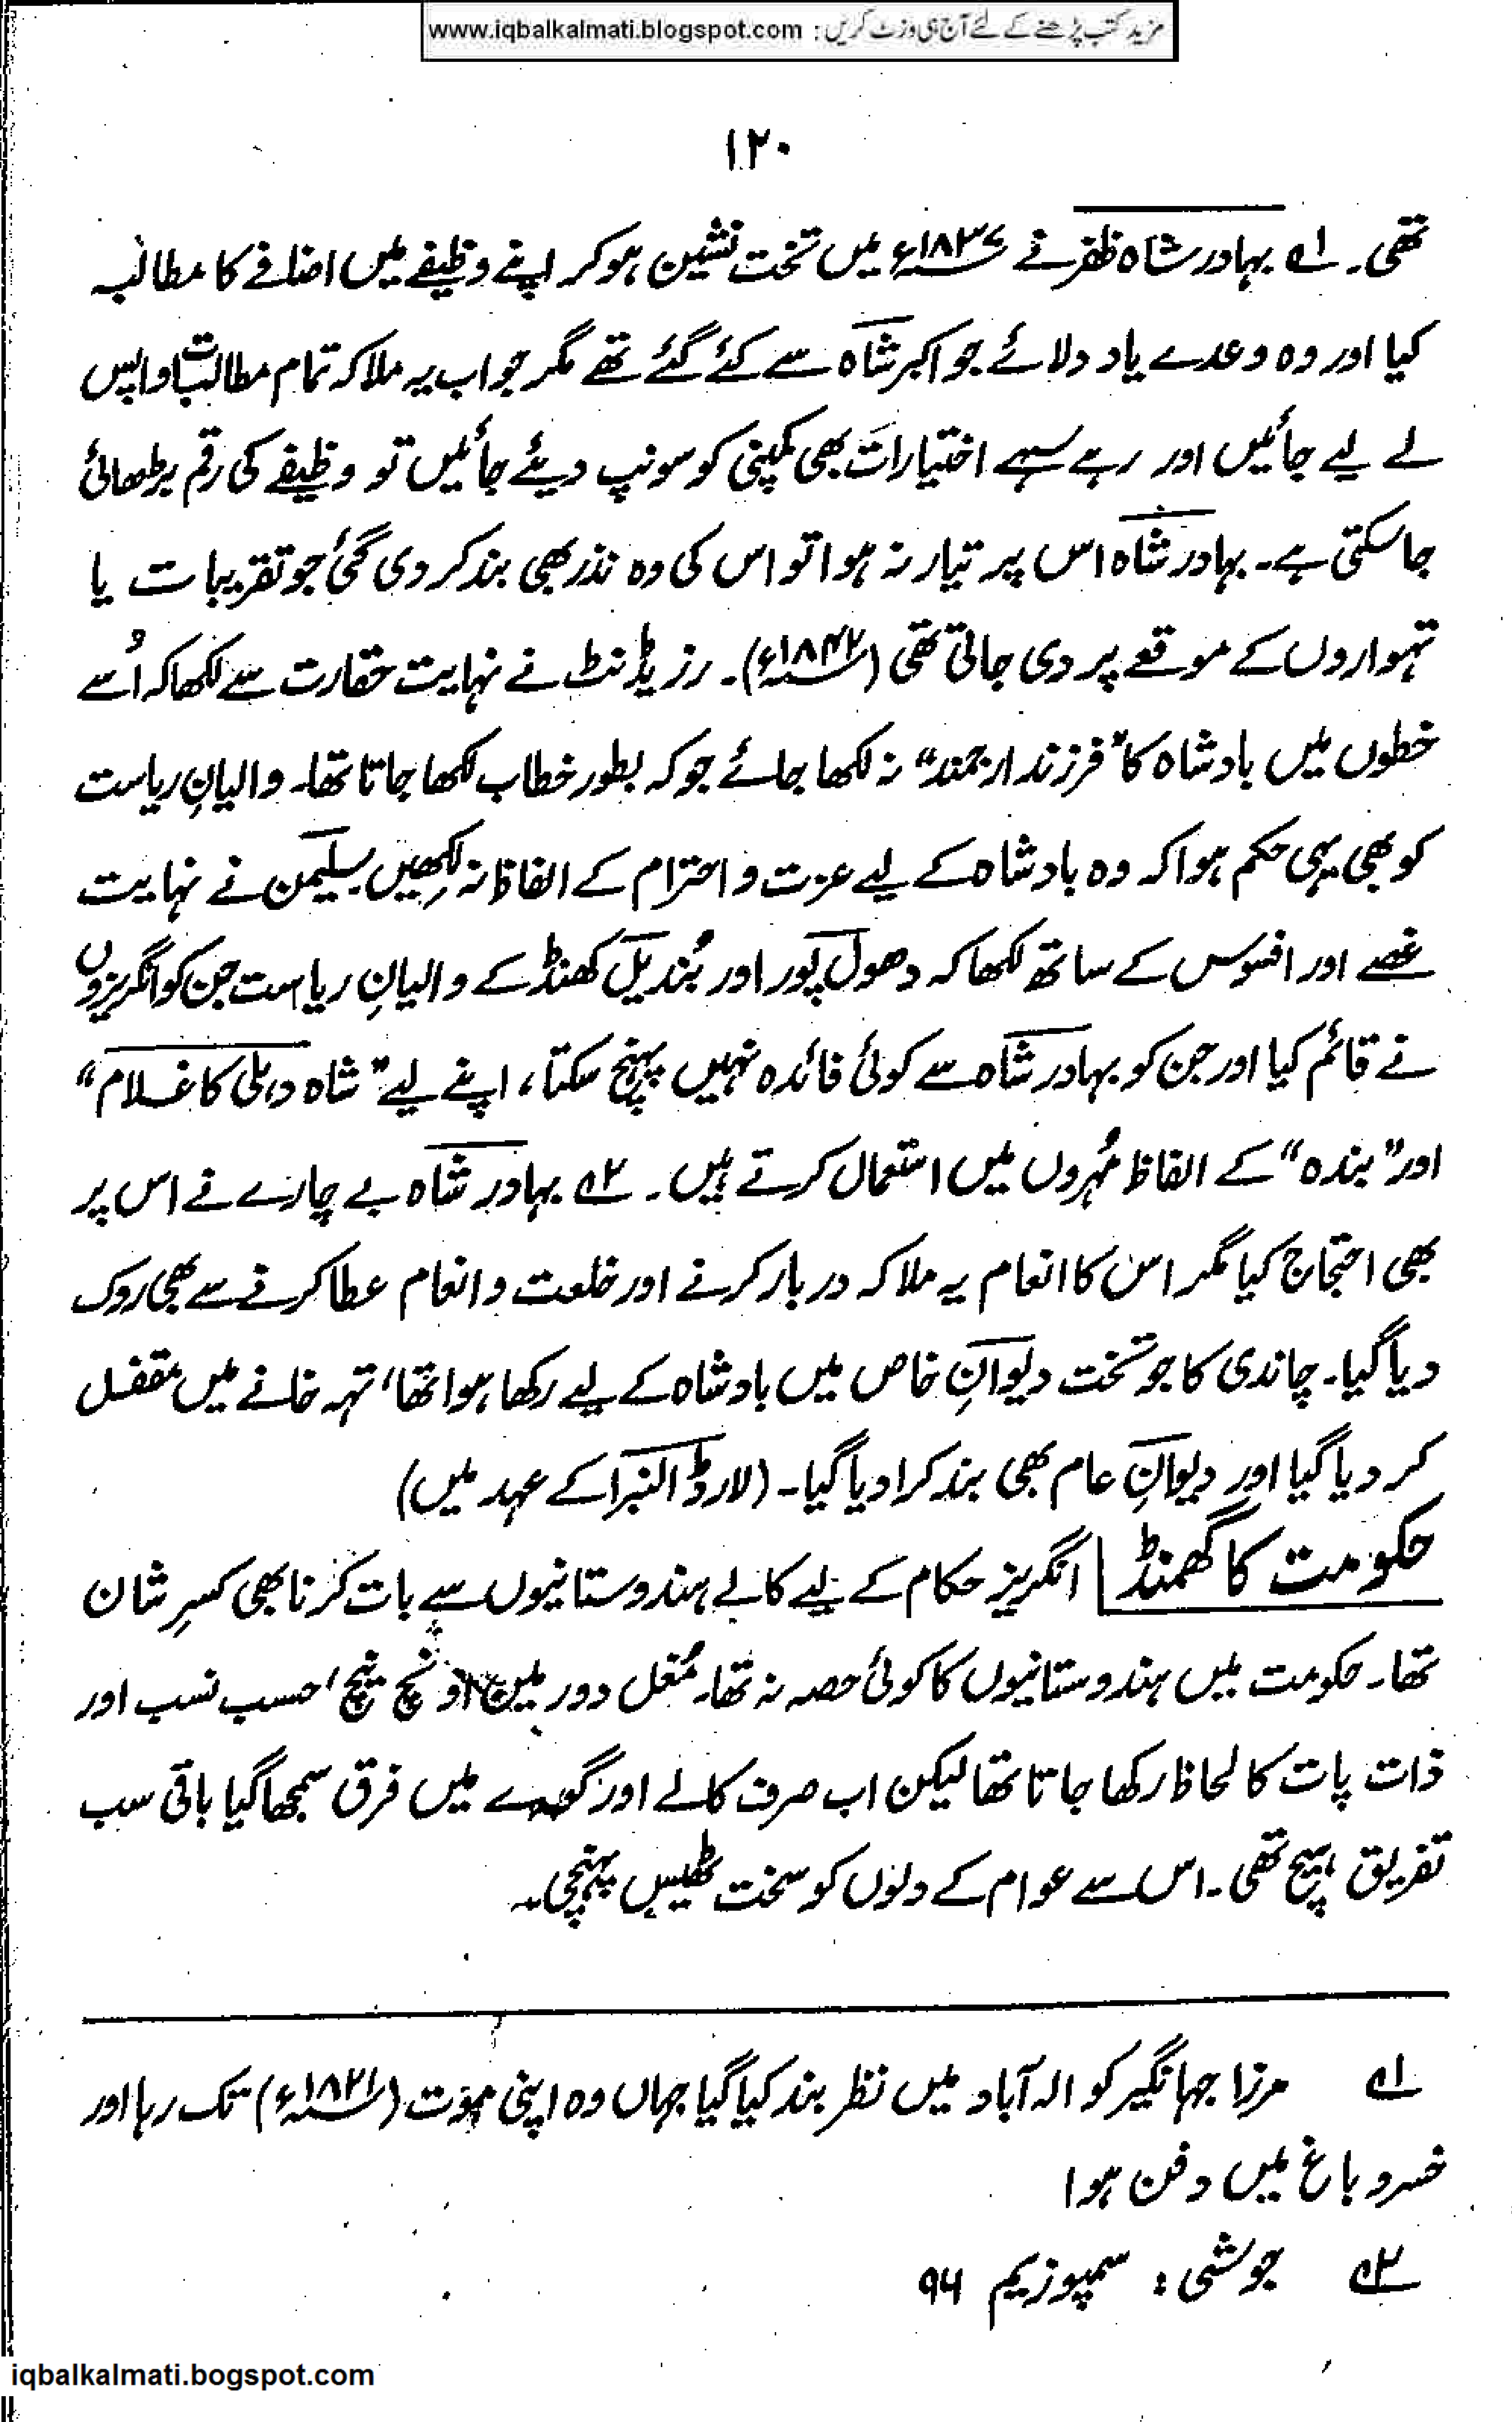 مزید کتب پڑھنے کے لئے آج ہی وزٹ کریں : www.iqbalkalmati.blogspot.com
۱۲۰
تھی۔ ۱ے بہادر شاہ ظفر نے ۱۸۳۷ء میں تخت نشین ہو کر اپنے وظیفے میں اضافے کا مطالبہ
کیا اور وہ وعدے یاد دلائے جو اکبر شاہ سے کئے گئے تھے مگر جواب یہ ملا کہ تمام مطالبات واپس
لے لیے جائیں اور رہے سہے اختیارات بھی کمپنی کو سونپ دیئے جائیں تو وظیفے کی رقم بڑھائی
جا سکتی ہے۔ بہادر شاہ اس پر تیار نہ ہوا تو اس کی وہ نذر بھی بند کر دی گئی جو تقریبات یا
تہواروں کے موقعے پر دی جاتی تھی (۱۸۴۲ء)۔ رزیڈنٹ نے نہایت حقارت سے لکھا کہ اُسے
خطوں میں بادشاہ کا "فرزند ارجمند" نہ لکھا جائے جو کہ بطور خطاب لکھا جاتا تھا۔ والیانِ ریاست
کو بھی یہی حکم ہوا کہ وہ بادشاہ کے لیے عزت و احترام کے الفاظ نہ لکھیں سلیمن نے نہایت
غصے اور افسوس کے ساتھ لکھا کہ دھول پور اور بُندیل کھنڈ کے والیانِ ریاست جن کو انگریزوں
نے قائم کیا اور جن کو بہادر شاہ سے کوئی فائدہ نہیں پہنچ سکتا، اپنے لیے "شاہ دہلی کا غلام"
اور "بندہ" کے الفاظ مُہروں میں استعمال کرتے ہیں۔ ۲ے بہادر شاہ بے چارے نے اس پر
بھی احتجاج کیا مگر اس کا انعام یہ ملا کہ دربار کرنے اور خلعت و انعام عطا کرنے سے بھی روک
دیا گیا۔ چاندی کا جو تخت دیوانِ خاص میں بادشاہ کے لیے رکھا ہوا تھا، تہہ خانے میں مقفل
کر دیا گیا اور دیوانِ عام بھی بند کرا دیا گیا۔ (لارڈ النبرا کے عہد میں)
حکومت کا گھمنڈ انگریز حکام کے لیے کالے ہندوستانیوں سے بات کرنا بھی کسرِ شان
تھا۔ حکومت میں ہندوستانیوں کا کوئی حصہ نہ تھا۔ مُغل دور میں اونچ نیچ، حسب نسب اور
ذات پات کا لحاظ رکھا جاتا تھا لیکن اب صرف کالے اور گورے میں فرق سمجھا گیا باقی سب
تفریق ہیچ تھی۔ اس سے عوام کے دلوں کو سخت ٹھیس پہنچی۔
۱ے مرزا جہانگیر کو الہ آباد میں نظر بند کیا گیا جہاں وہ اپنی موت (۱۸۲۱ء) تک رہا اور
خسرو باغ میں دفن ہوا
۲ے جوشی: سمپوزیم ۹۶
iqbalkalmati.bogspot.com